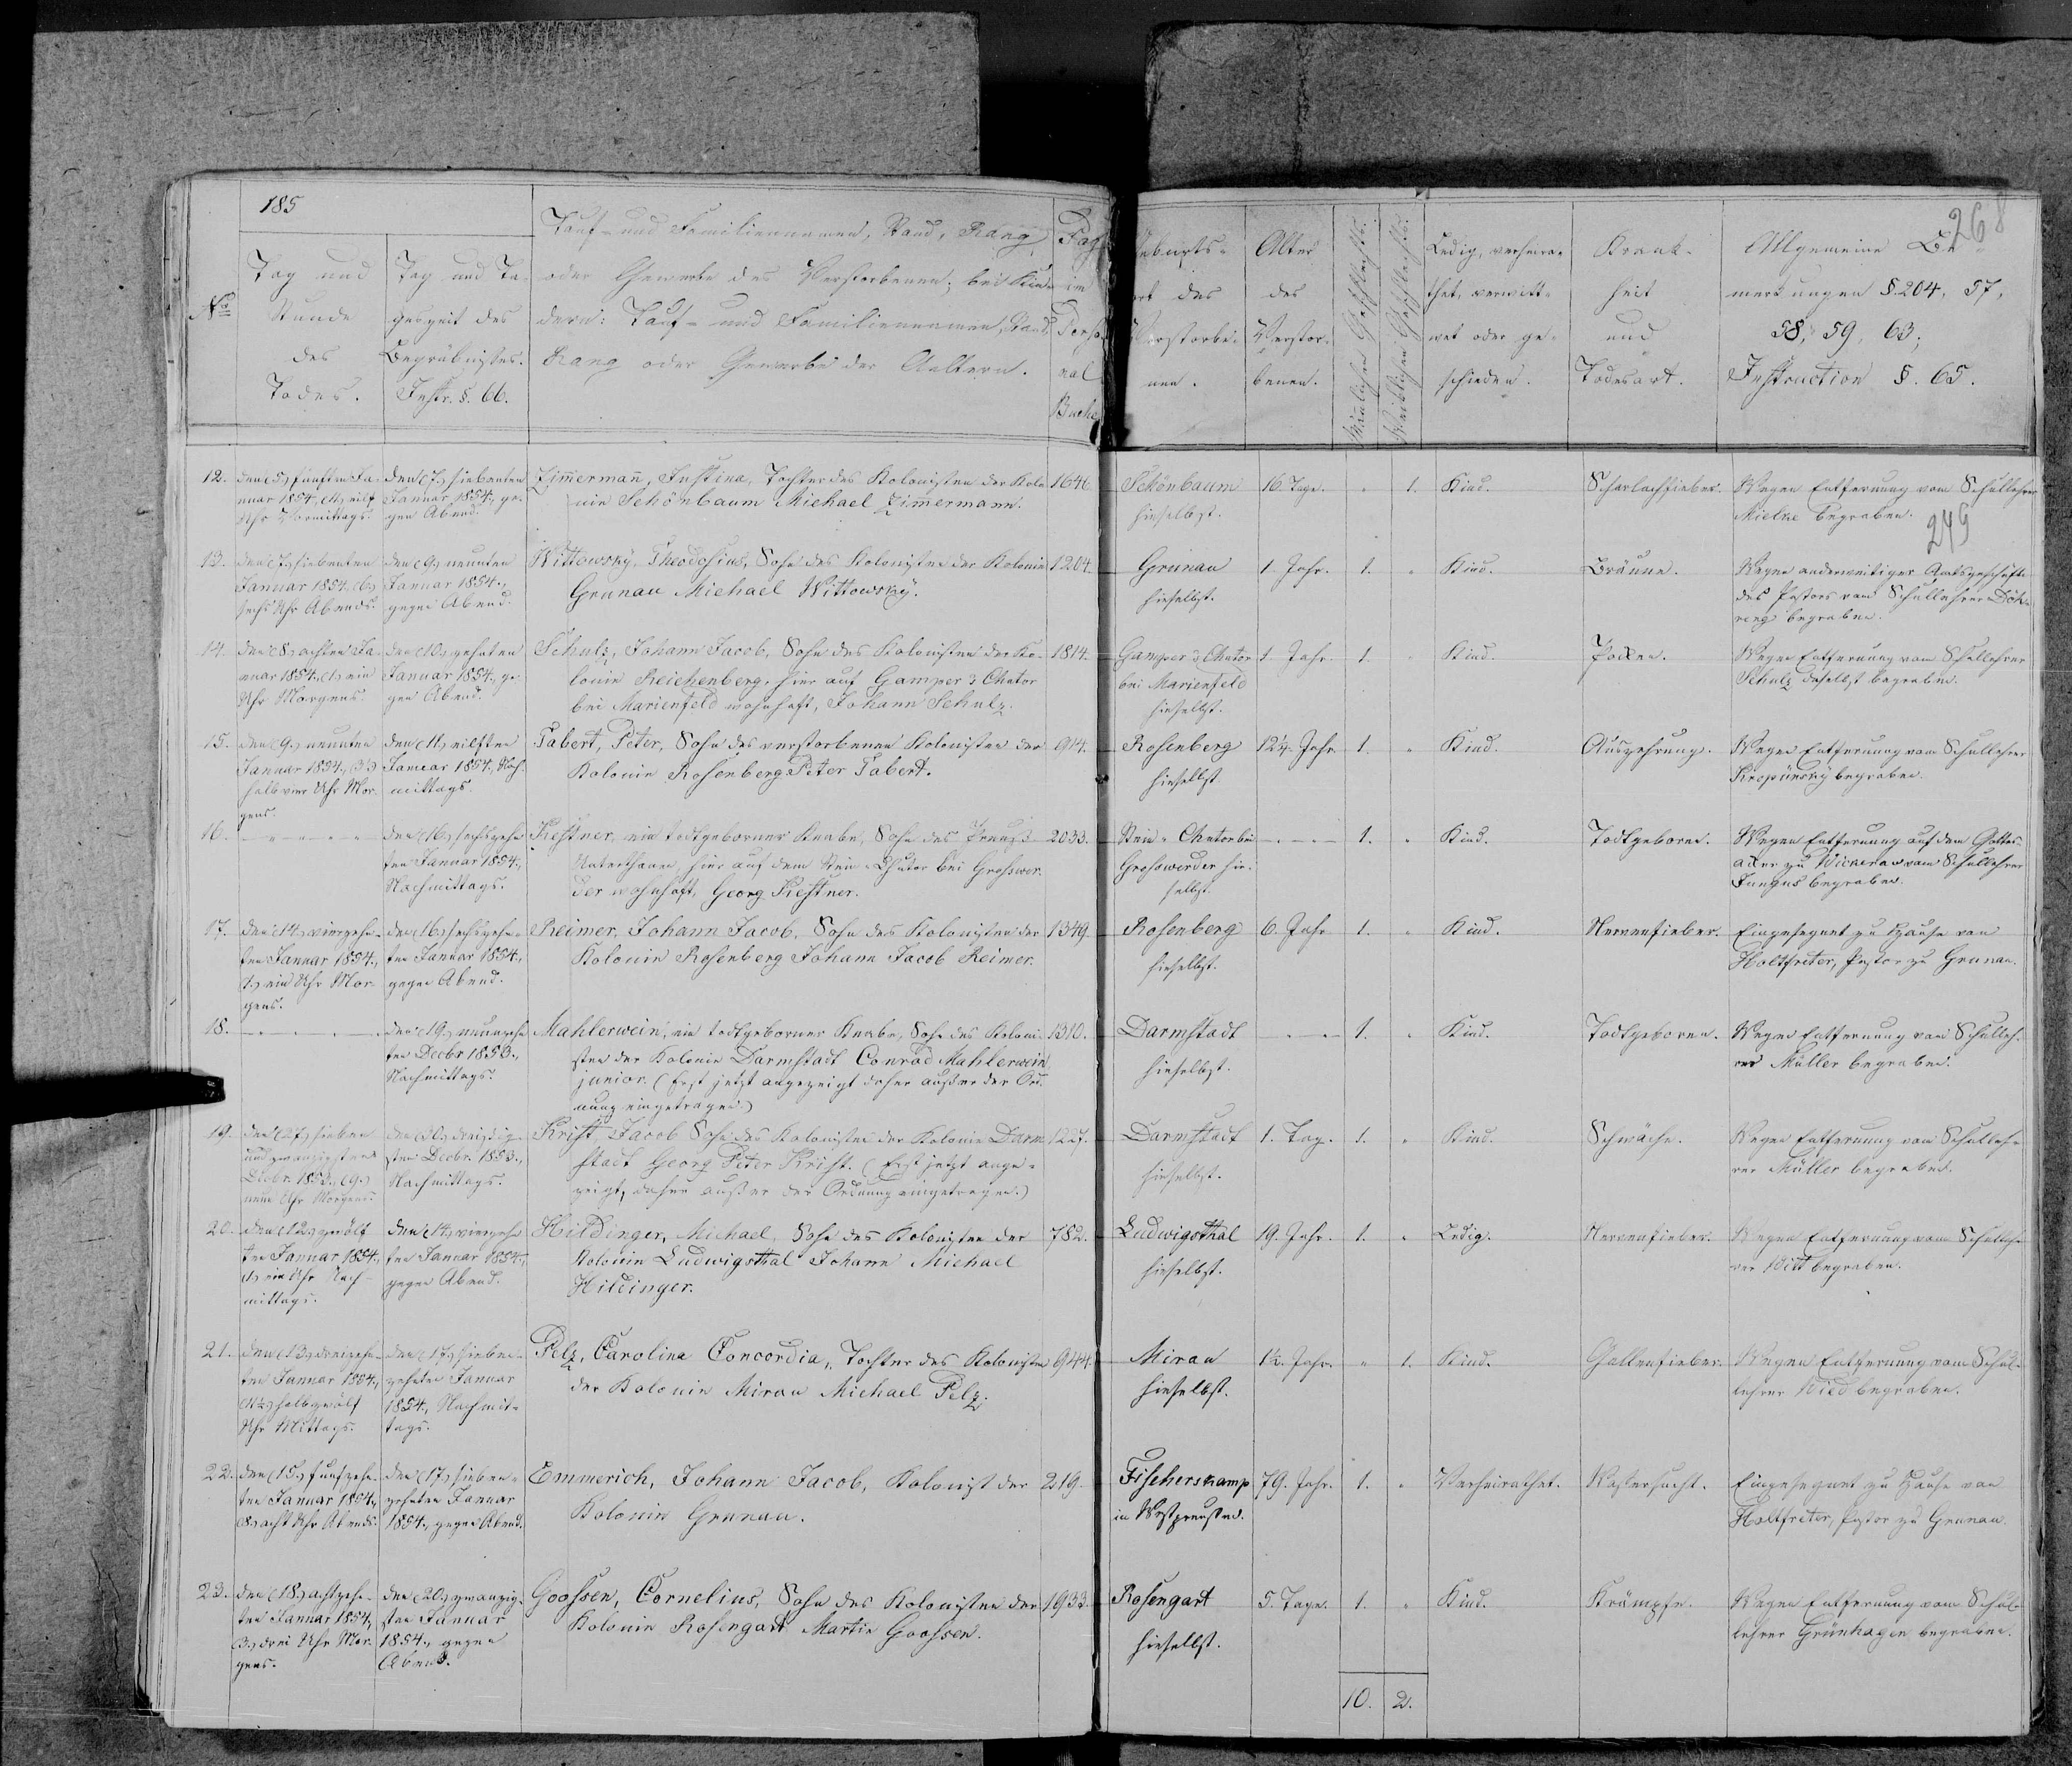 185
268
Tauf- und Familiennamen, Stand, Rang
oder Gewerbe des Verstorbenen; bei Kin-
dern: Tauf- und Familiennamen, Stand,
Rang oder Gewerbe der Aeltern.
No
Tag und
Stunde
des
Todes.
Tag und Ta-
geszeit des
Begräbnisses.
Instr. §. 66.
Pag
im
Perso
nal
Buche
Geburts-
ort des
Verstorbe-
nen.
Alter
des
Verstor-
benen.
Männlichen Geschlechts.
Weiblichen Geschlechts.
Ledig, verheira-
thet, verwitt-
wet oder ge-
schieden.
Krank-
heit
und
Todesart.
Allgemeine Be-
merkungen §. 204, 57,
58, 59, 63;
Instruction §. 65.
12.
den (5) fünften Ja-
nuar 1854, (11) eilf
Uhr Vormittags.
den (7) siebenten
Januar 1854, ge-
gen Abend.
Zimmermann, Justina, Tochter des Kolonisten der Kolo-
nie Schönbaum Michael Zimmermann.
1646
Schönbaum
hieselbst.
16. Tage.
1.
Kind.
Scharlachfieber.
Wegen Entfernung vom Schullehrer
Mielke begraben.
249
13.
den (7) siebenten
Januar 1854, (6)
sechs Uhr Abends.
den (9) neunten
Januar 1854,
gegen Abend.
Wittowsky, Theodosius, Sohn des Kolonisten der Kolonie
Grunau Michael Wittowsky.
1204.
Grunau
hieselbst.
1. Jahr.
1.
Kind.
Bräune.
Wegen anderweitiger Amtsgeschäfte
des Pastors vom Schullehrer Döh-
ring begraben.
14.
den (8) achten Ja-
nuar 1854, (1) ein
Uhr Morgens.
den (10) zehnten
Januar 1854, ge-
gen Abend.
Schulz, Johann Jacob, Sohn des Kolonisten der Ko-
lonie Reichenberg, hier auf Gamper's Chutor
bei Marienfeld wohnhaft, Johann Schulz.
1814.
Gamper's Chutor
bei Marienfeld
hieselbst.
1 Jahr.
1.
Kind.
Pocken.
Wegen Entfernung vom Schullehrer
Schulz daselbst begraben.
15.
den (9) neunten
Januar 1854, (3½)
halb vier Uhr Mor-
gens.
den (11) eilften
Januar 1854, Nach-
mittags.
Tabert, Peter, Sohn des verstorbenen Kolonisten der
Kolonie Rosenberg Peter Tabert.
914.
Rosenberg
hieselbst.
12¼ Jahr
1.
Kind.
Auszehrung.
Wegen Entfernung vom Schullehrer
begraben.
16.
den (16) sechszehn-
ten Januar 1854,
Nachmittags.
Kestner, ein todtgeborner Knabe, Sohn des Preuß.
Unterthanen, hier auf dem Stein-Chutor bei Grosswer-
der wohnhaft, Georg Kestner.
2033.
Stein-Chutor bei
Grosswerder hie-
selbst.
1.
Kind.
Todtgeboren.
Wegen Entfernung auf dem Gottes-
acker zu Wickerau vom Schullehrer
begraben.
17.
den (14) vierzehn-
ten Januar 1854,
(1) ein Uhr Mor-
gens.
den (16) sechszehn-
ten Januar 1854,
gegen Abend.
Reimer, Johann Jacob, Sohn des Kolonisten der
Kolonie Rosenberg Johann Jacob Reimer.
1349.
Rosenberg
hieselbst.
6. Jahr
1.
Kind.
Nervenfieber.
Eingesegnet zu Hause von
Holtfreter, Pastor zu Grunau.
18.
den (19) neunzehn-
ten Decbr 1853,
Nachmittags.
Mahlerwein, ein todtgeborner Knabe, Sohn des Koloni-
sten der Kolonie Darmstadt Conrad Mahlerwein
junior. (Erst jetzt angezeigt daher außer der Ord-
nung eingetragen.)
1310.
Darmstadt
hieselbst.
1.
Kind.
Todtgeboren.
Wegen Entfernung vom Schulleh-
rer Müller begraben.
19.
den (27) sieben
und zwanzigsten
Decbr. 1853, (9)
neun Uhr Morgens.
den (30) dreißig-
sten Decbr. 1853,
Nachmittags.
Krist, Jacob Sohn des Kolonisten der Kolonie Darm-
stadt Georg Peter Krist. (Erst jetzt ange-
zeigt, daher außer der Ordnung eingetragen.)
1227.
Darmstadt
hieselbst.
1. Tag.
1.
Kind.
Schwäche.
Wegen Entfernung vom Schulleh-
rer Müller begraben.
20.
den (12) zwölf-
ten Januar 1854,
(1) ein Uhr Nach-
mittags.
den (14) vierzehn-
ten Januar 1854,
gegen Abend.
Hildinger, Michael, Sohn des Kolonisten der
Kolonie Ludwigsthal Johann Michael
Hildinger.
782.
Ludwigsthal
hieselbst.
19. Jahr.
1.
Ledig.
Nervenfieber.
Wegen Entfernung vom Schulleh-
rer Witt begraben.
21.
den (13) dreizehn-
ten Januar 1854,
(11½) halb zwölf
Uhr Mittags.
den (17) sieben-
zehnten Januar
1854, Nachmit-
tags.
Pelz, Carolina Concordia, Tochter des Kolonisten
der Kolonie Mirau Michael Pelz.
944.
Mirau
hieselbst.
1½. Jahr.
1.
Kind.
Gallenfieber.
Wegen Entfernung vom Schul-
lehrer Wied begraben.
22.
den (15) fünfzehn-
ten Januar 1854,
(8) acht Uhr Abends.
den (17) sieben-
zehnten Januar
1854, gegen Abend.
Emmerich, Johann Jacob, Kolonist der
Kolonie Grunau.
219.
Fischerskamp
in Westpreußen.
79. Jahr.
1.
Verheirathet.
Wassersucht.
Eingesegnet zu Hause von
Holtfreter, Pastor zu Grunau.
23.
den (18) achtzehn-
ten Januar 1854,
(3) drei Uhr Mor-
gens.
den (20) zwanzig-
sten Januar
1854, gegen
Abend.
Goossen, Cornelius, Sohn des Kolonisten der
Kolonie Rosengart Martin Goossen.
1933.
Rosengart
hieselbst.
5. Tage.
1.
Kind.
Krämpfe.
Wegen Entfernung vom Schul-
lehrer Grünhagen begraben.
10.
2.